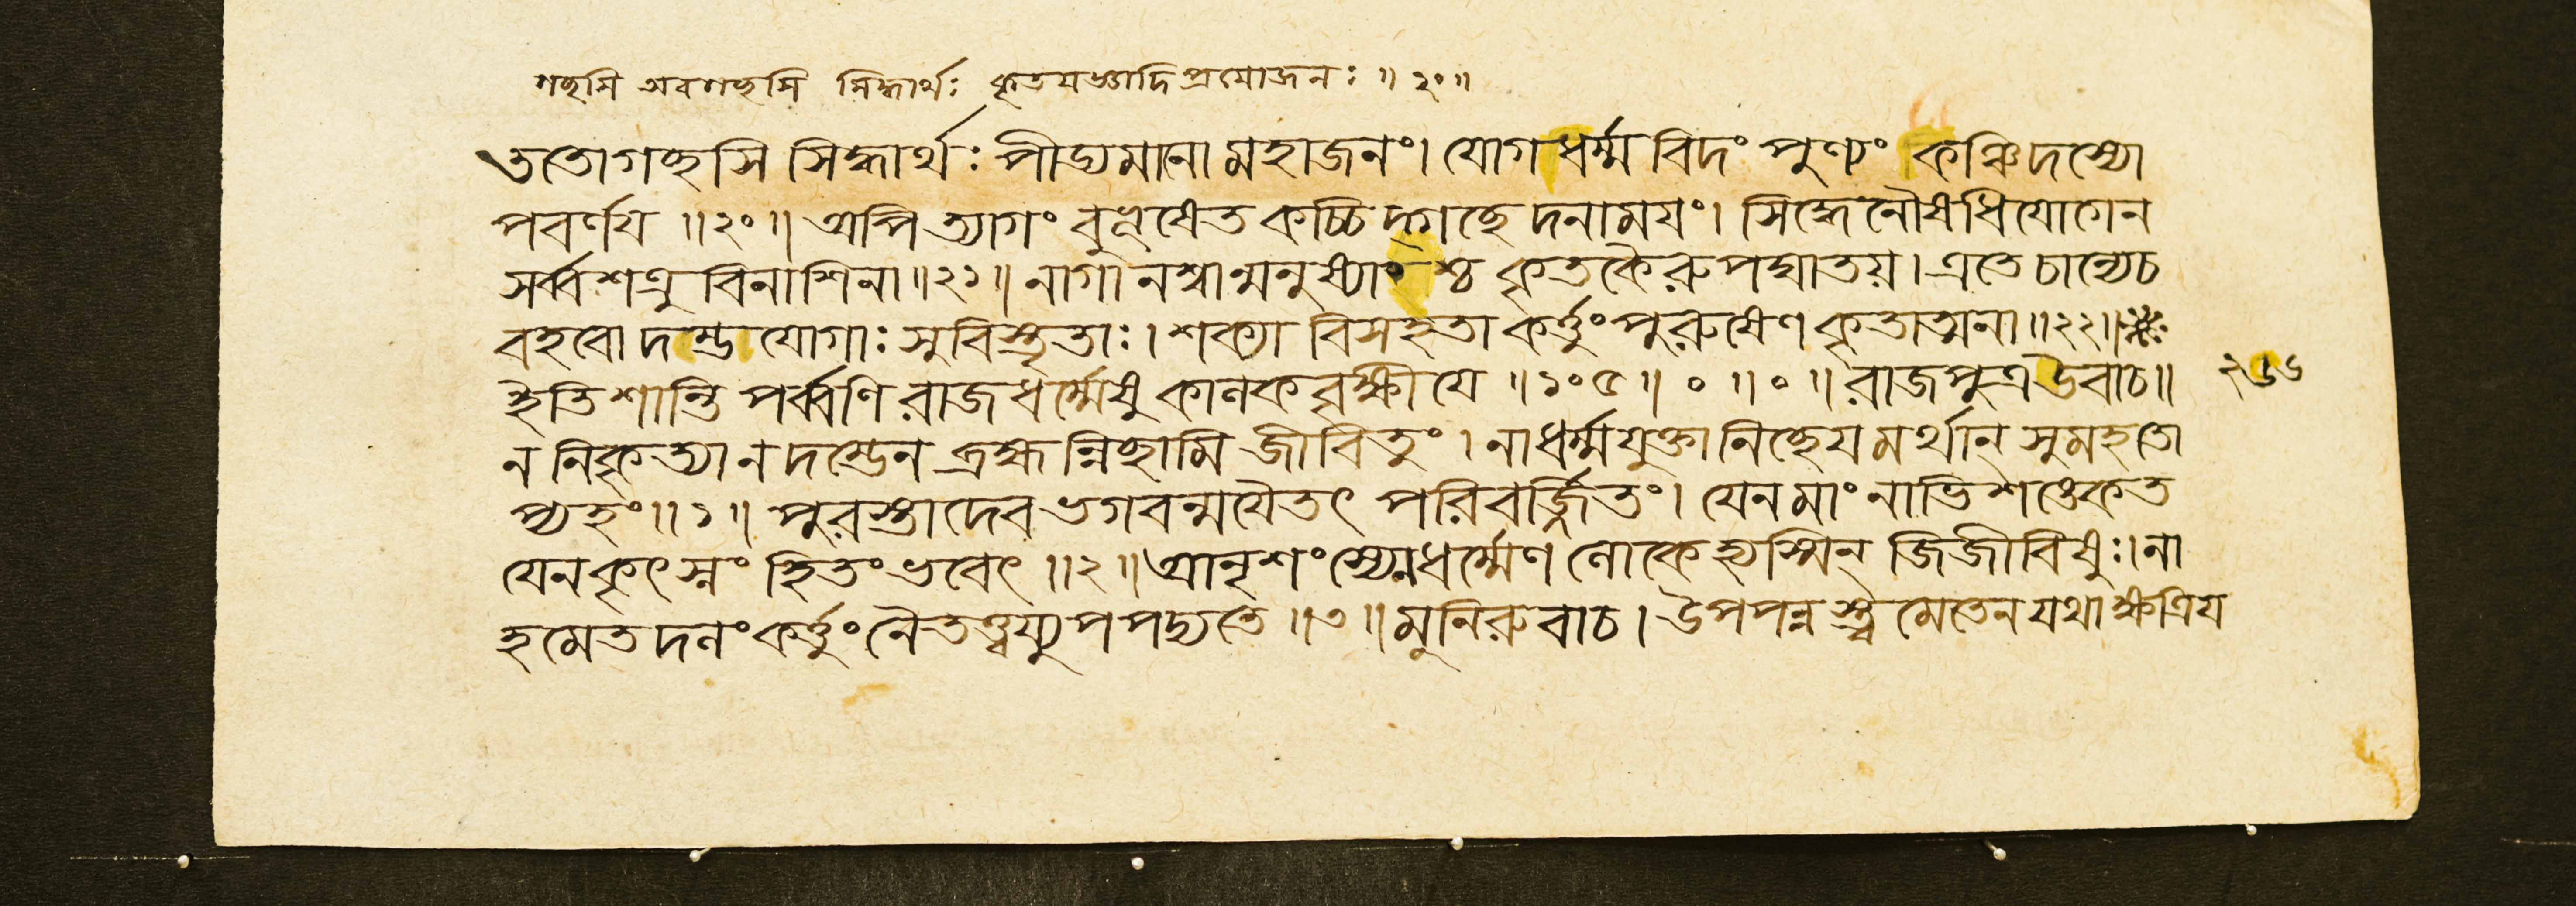 গচ্ছসি অবগচ্ছসি সিদ্ধার্থঃ কৃতযজ্ঞাদিপ্রয়োজনঃ ॥ ২০ ॥
ততো গচ্ছসি সিদ্ধার্থঃ পীড্যমানো মহাজনং। যোগধর্ম্মবিদং পুণ্যং কঞ্চিদস্যো
পবর্ণয ॥ ২০ ॥ অপি ত্যাগং বুভূষেত কচ্চিদ্গচ্ছেদনাময়ং। সিদ্ধেনৌষধিযোগেন
সর্ব্বশত্রুবিনাশিনা ॥ ২১ ॥ নাগানশ্বান্মনুষ্যাংশ্চ কৃতকৈরুপঘাতয়। এতে চান্যেচ
বহবো দম্ভযোগাঃ সুবিস্তৃতাঃ। শক্যা বিসহতা কর্ত্তুং পুরুষেণ কৃতাত্মনা ॥ ২২ ॥
ইতি শান্তিপর্ব্বণি রাজধর্ম্মেষু কালকবৃক্ষীযে ॥ ১০৫ ॥ ০ ॥ ০ ॥ রাজপুত্র উবাচ ॥
ন নিকৃত্যা ন দম্ভেন ব্রহ্মন্নিচ্ছামি জীবিতুং। নাধর্ম্মযুক্তানিচ্ছেযমর্থান্ সুমহতো
প্যহং ॥ ১ ॥ পুরস্তাদেব ভগবন্মযৈতৎ পরিবর্জ্জিতং। যেন মাং নাভিশঙ্কেত
যেন কৃৎস্নং হিতং ভবেৎ ॥ ২ ॥ আনৃশংস্যেনধর্ম্মেণ লোকে হ্যস্মিন্ জিজীবিষুঃ। না
হমেতদলং কর্ত্তুং নৈতত্ত্বয্যুপপদ্যতে ॥ ৩ ॥ মুনিরুবাচ। উপপন্নস্ত্বমেতেন যথা ক্ষত্রিয